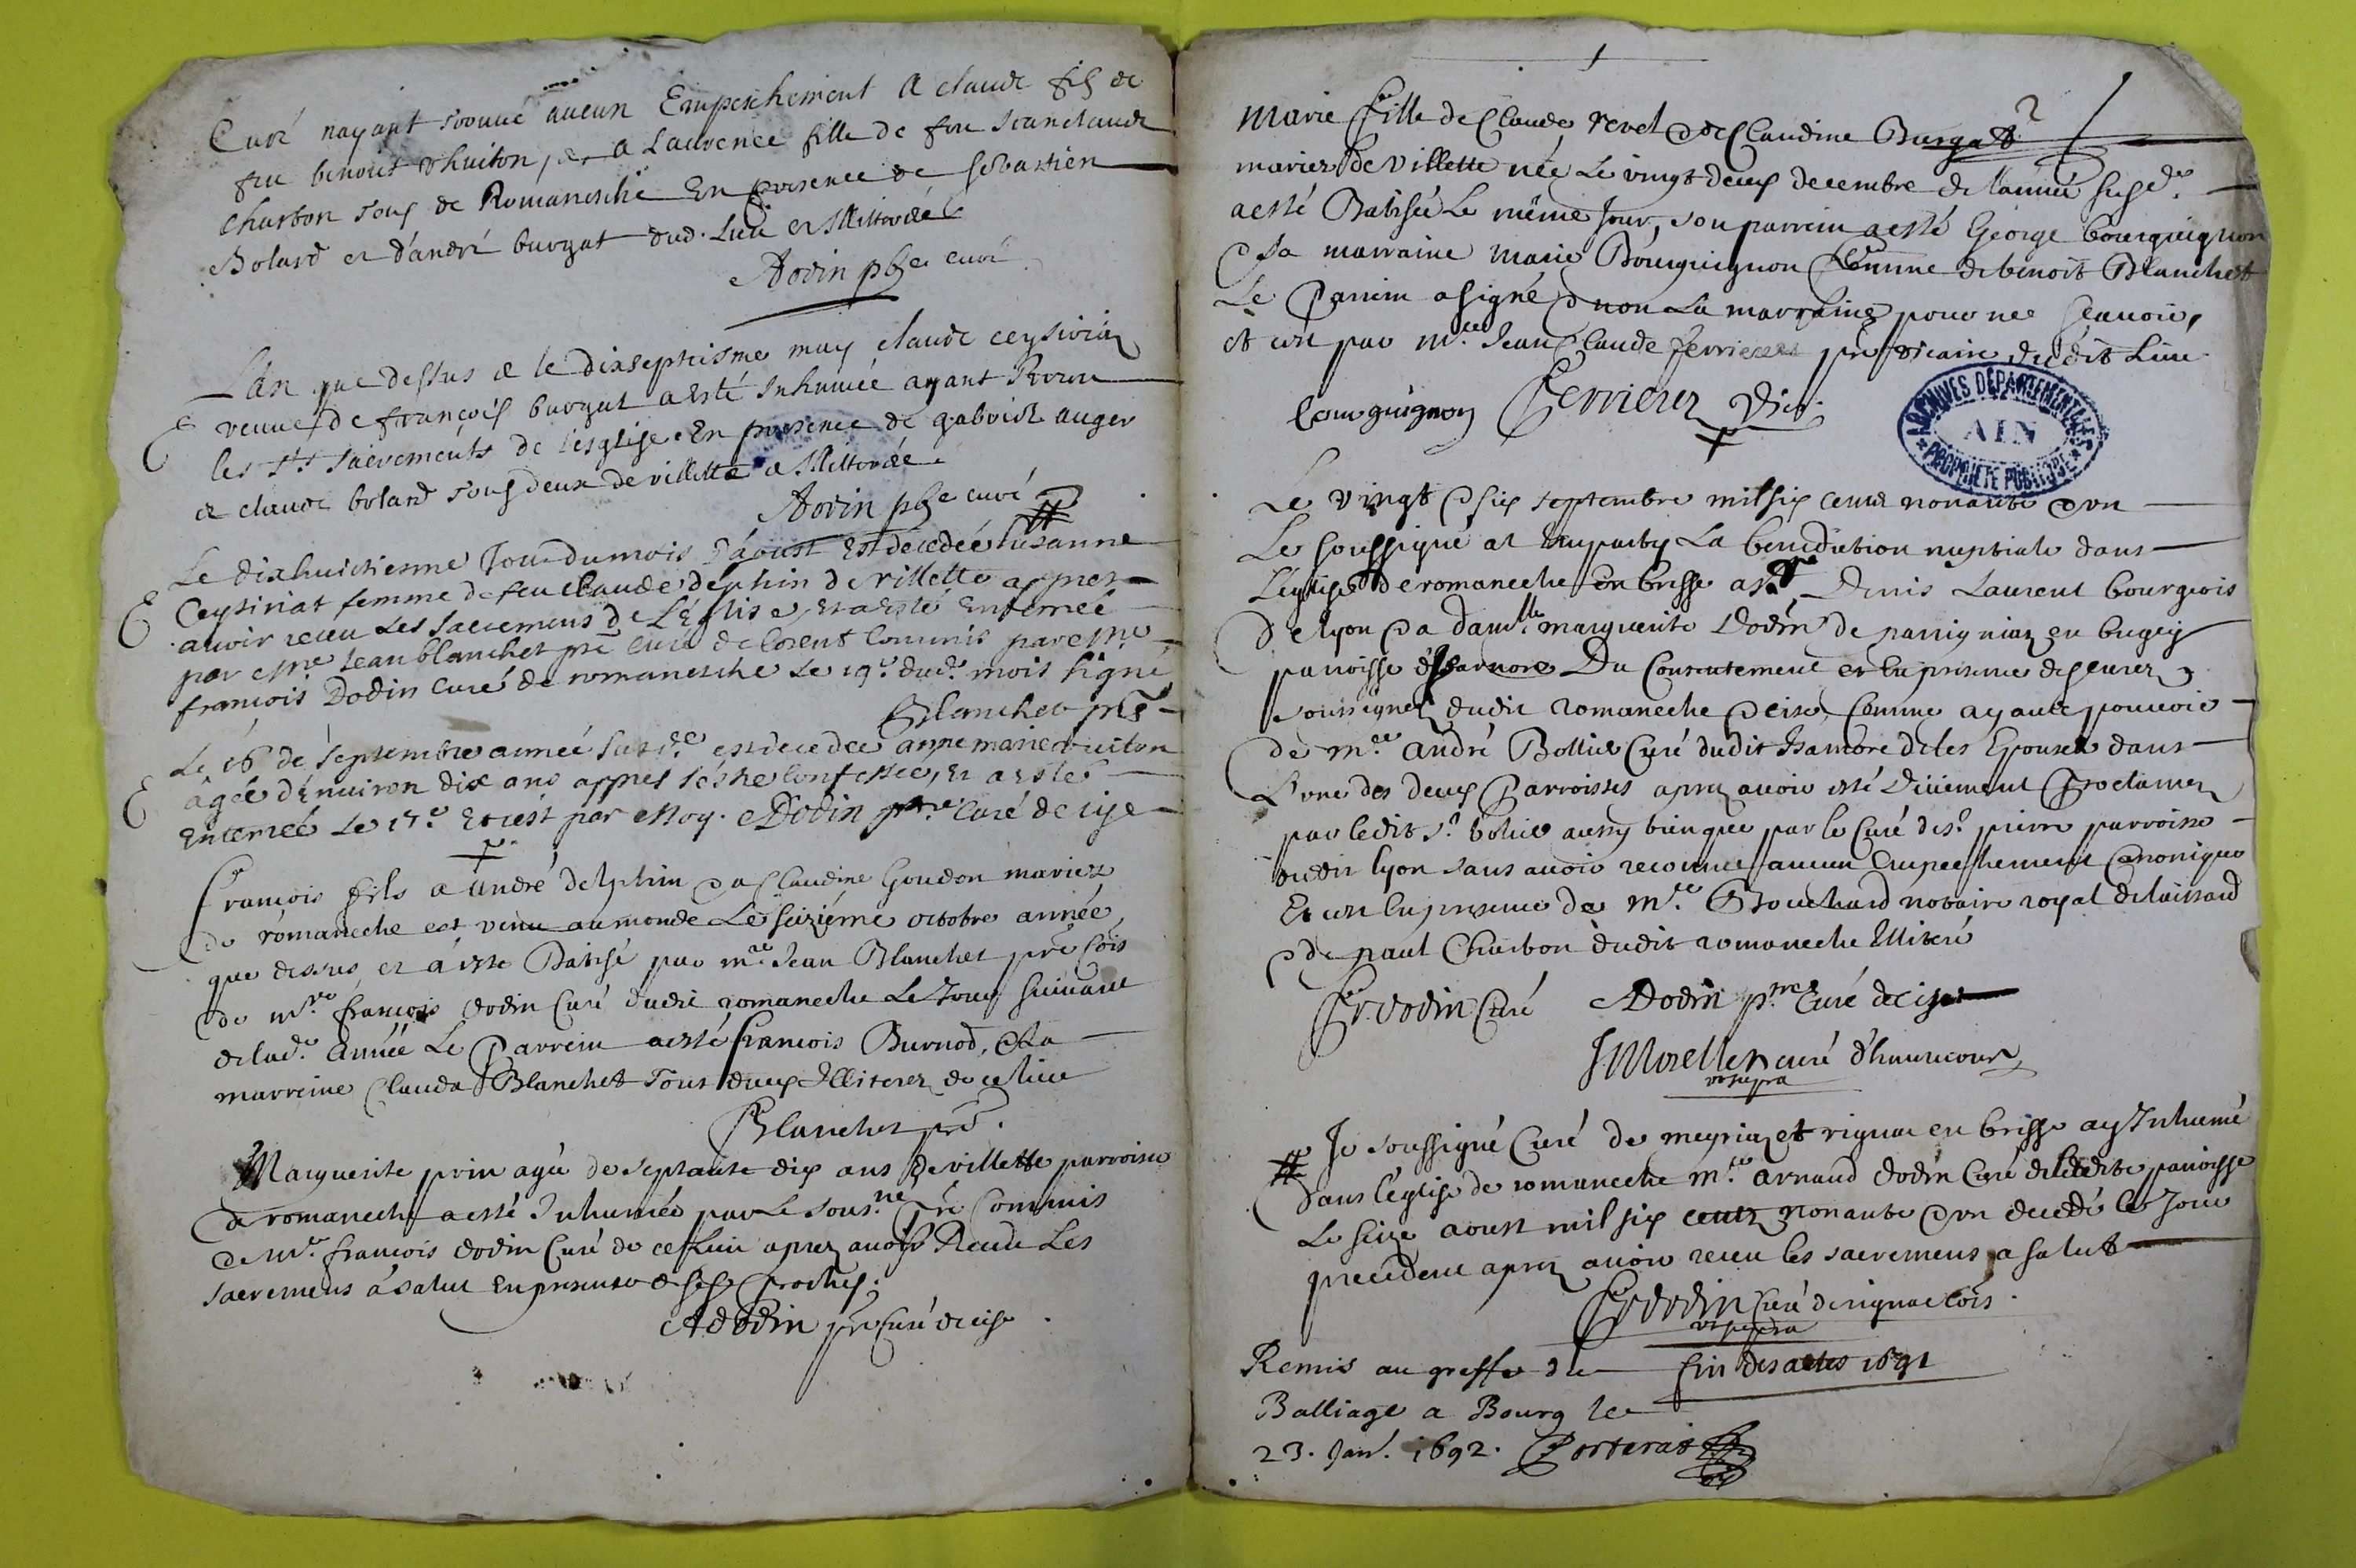 Curé nayant trouué aucun Empeschement A claude fils de
feu benoist d'huiton, et a Laurence fille de feu Jeanclaude
charbon tous de Romanesche En presence de sebastien
Bolard et d'andré burgat dud. Lieu et Illitterées
ADodin pbre curé
L'an que dessus et le dixseptiesme may claude ceysiriat
veuue de françois burgat a esté Inhumée ayant Receu
les Sts Sacrements de l'esglise En presence de auger
et claude bolard tous deux de villette et Illitterée
ADodin pbre curé #
Le dixhuictiesme Jour du mois d'aoust Est décédée susanne
Ceysiriat femme de feu claude delphin de villette appres
auoir receu Les sacremens de L'Eglise, Et a esté Enterreé
par Mre Jean blanchet pre curé de Corent Commis par Mre
françois Dodin curé de romanesche Le 19e dud. mois signé
Blanchet pre
Le 16 de septembre année susd.e est decedee anne marie vuiton
âgée d'énuiron dix ans appres s'éstre Confessée, Et a esté
Enterreé Le 17.e Et c'est par Moy. ADodin pre Curé de cise
François fils a André delphin & a Claudine Goudon mariez
de rómaneche est venu au monde Le seiziéme octobre année
que dessus et á esté Batisé par mre Jean Blanchet pre Cois
de mre françois Dodin Curé dudit romaneche Le Jour suiuant
de lad.e année Le Parrein a esté françois Burnod, & La
marreine Clauda Blanchet Tous deux Illiterez de ce lieu
Blanchet pre.
Marguerite prin agée de septante dix ans de villette parroisse
de romaneche a esté Inhumée par Le sous.né pre Commis
de Mre françois Dodin Curé de ce Lieu aprez auoir Receu Les
sacremens á salut En presence de ses proches.
ADodin pre Curé de cise
1
Marie fille de Claude revel & de Claudine Burgat 2
mariez de villette née Le vingt deux decembre de l'année susd.e
a esté Batisée Le même Jour, son parrein a esté George bourguignon
& sa marraine marie Bourguignon femme de benoit Blanchet
Le Parrin a signé & non La marraine pour ne sçauoir,
et c'est par mre Jean Claude ferrierez pre vicaire dudit Lieu
bourguignon Ferrierez Vic.
ARCHIVES DÉPARTEMENTALES
AIN
PROPRIÉTÉ PUBLIQUE
Le vingt & six septembre mil six cents nonante & un
Le soussigné at Imparty La benediction nuptiale dans
L'église de romaneche En bresse a Sr Denis Laurent bourgeois
de Lyon & a damlle marguerite Dodin de parrigniaz en bugey
paroisse d'Isarnore Du Consentement et En presence des curez
soussignez dudit romaneche & cise, Comme ayant pouuoir
de mre André Bollie Curé dudit Isarnore de les Epouser dans
L'une des deux Parroisses aprez auoir esté Deüement Proclamez
par ledit Sr bolie aussy bien que par le Curé de St pierre parroisse
dudit lyon sans auoir reconnu aucun Empeschement Canonique
Et c'est En presence de Mre Brouchard notaire royal
& de paul Charbon dudit romaneche Illiteré
Fr. Dodin Curé ADodin p.re Curé de cise
J. Morellet curé d'hauttecour
vt supra
# Je soussigné Curé de meyriaz et rignac en bresse ay Inhumé
Dans l'église de romaneche mre arnaud Dodin Curé de ladite paroisse
Le seize aoust mil six cents nonante & un decedé le Jour
precedent aprez auoir receu les sacremens a salut
Fr Dodin Curé de rignac Cois.
vt supra
Remis au greffe du fin des actes 1691
Balliage a Bourg le
23. Janr. 1692. Porterat